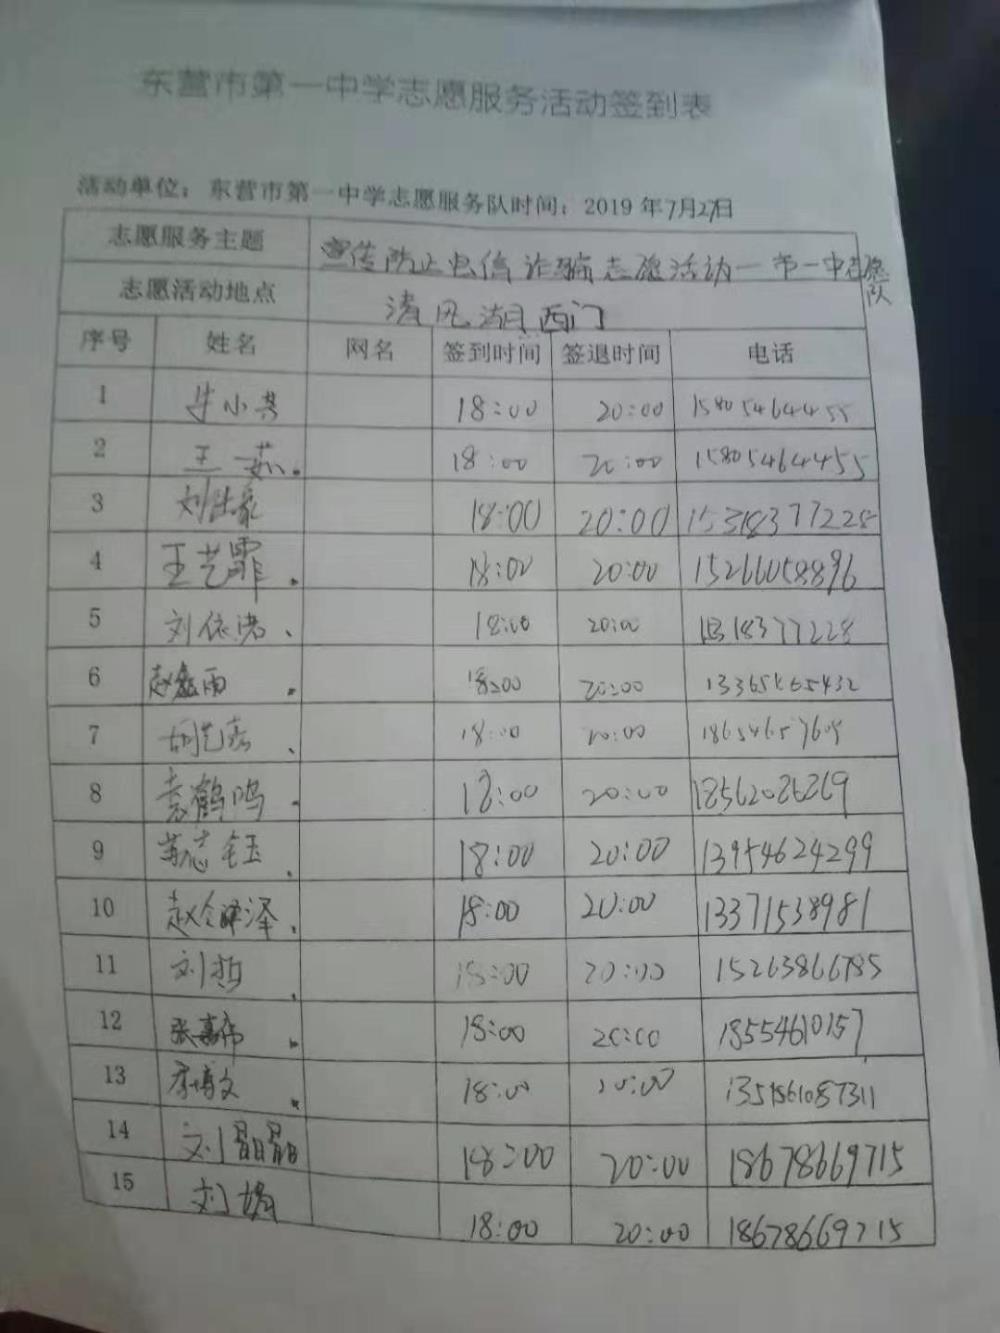 东营市第一中学志愿服务活动签到表
活动单位：东营市第一中学志愿服务队时间：2019年7月27日
志愿服务主题 宣传防止电信诈骗志愿活动一市一中志愿队
志愿活动地点 清风湖西门
序号 姓名 网名 签到时间 签退时间 电话
1 18:00 20:00 15805464455
2 王茹. 18:00 20:00 15805464455
3 18:00 20:00 15318377228
4 王艺霏. 18:00 20:00 15266058896
5 刘依诺、 18:00 20:00
6 赵鑫雨. 18:00 20:00
7 18:00 20:00
8 袁鹤鸣. 18:00 20:00
9 18:00 20:00 13954624299
10 18:00 20:00 13371538981
11 刘哲. 18:00 20:00 15263866785
12 18:00 20:00 18554610157
13 18:00 20:00
14 刘晶晶 18:00 20:00 18678669715
15 刘娟 18:00 20:00 18678669715